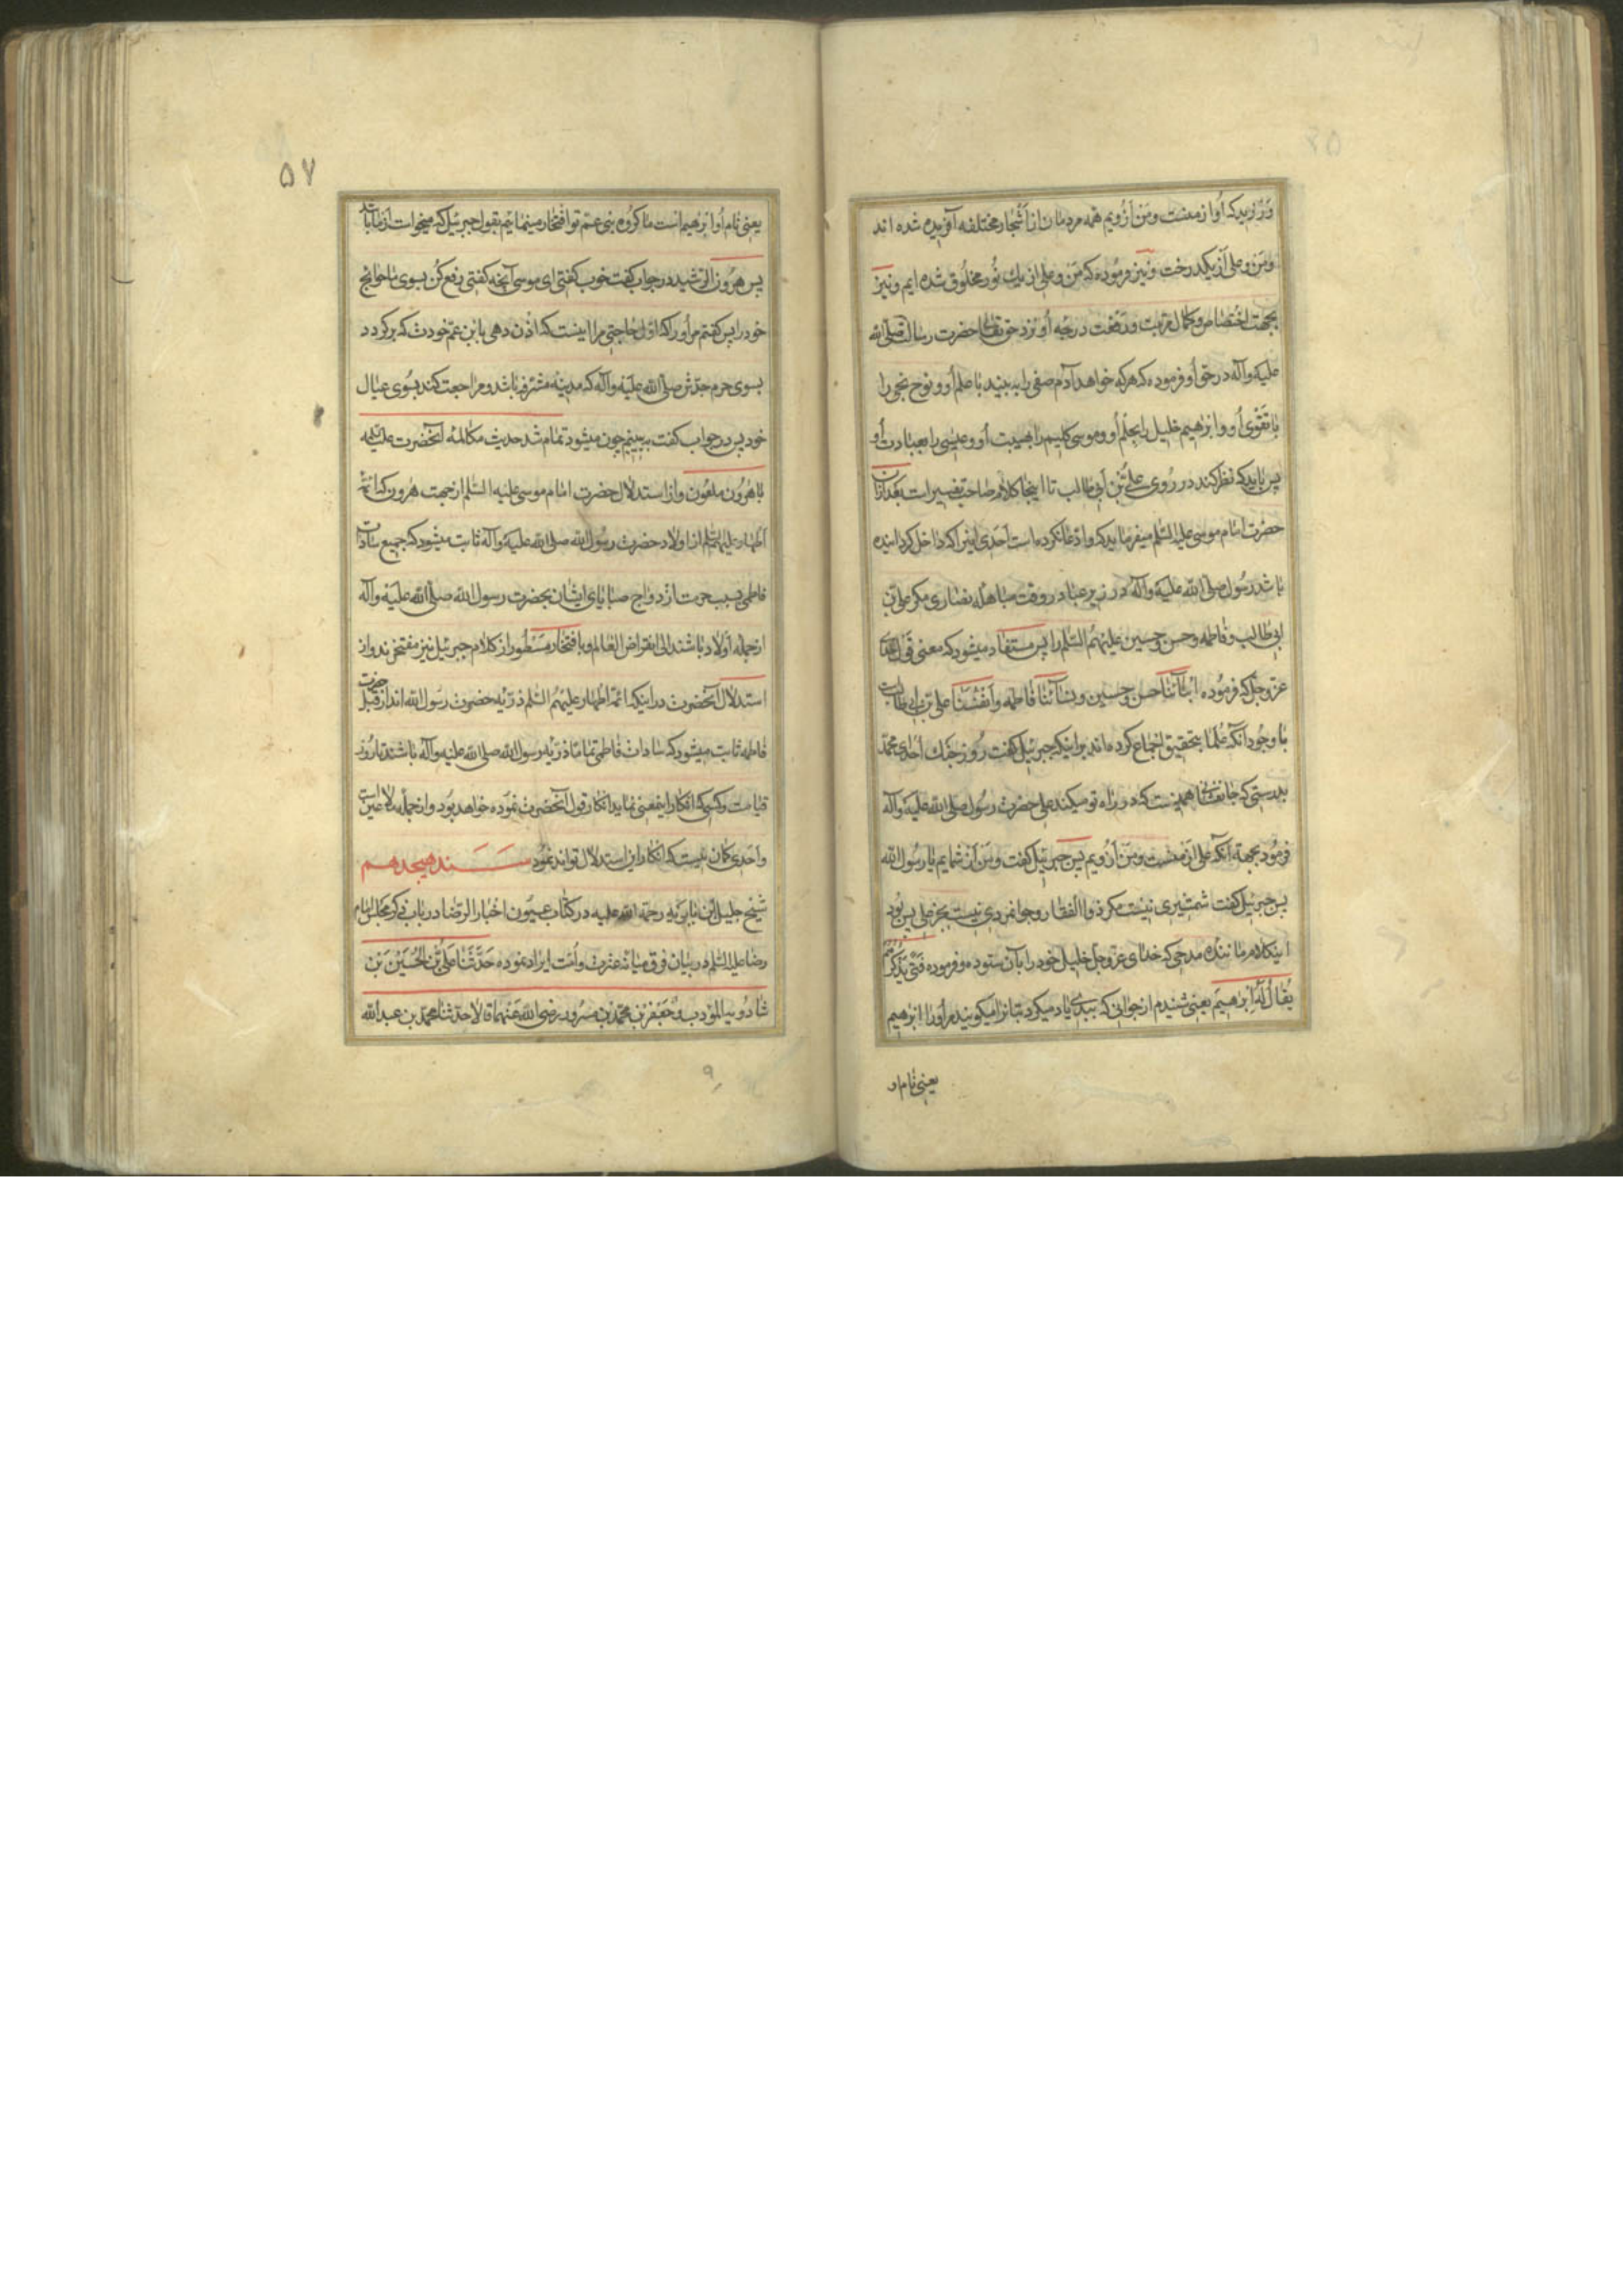 و زیرکه او از منست و من از ویم همه مردمان از اشجار مختلفه آفریده شده اند
و من و علی از یکدرخت و نیز فرموده که من و علی از یک نور مخلوق شده ایم و نیز
بجهت اختصاص و کمال قربت و رفعت درجه او نزد حق تعالی حضرت رسالت صلی الله
علیه و آله در حق او فرموده که هر که خواهد آدم صفی را به بیند با علم او و نوح نجی را
با تقوی او و ابرهیم خلیل را بحلم او و موسی کلیم را بهیبت او و عیسی را بعبادت او
پس باید که نظر کند در روی علی بن ابی طالب تا اینجا کلام صاحب تفسیر است بعد از آن
حضرت امام موسی علیه السلم میفرماید که و ادعا نکرده است احدی اینرا که داخل کردانیده
باشد رسول صلی الله علیه و آله در زیر عبا در وقت مباهله نصاری مکر علی بن
ابی طالب و فاطمه و حسن و حسین علیهم السلم را پس مستفاد میشود که معنی قول خدای
عز و جل که فرموده ابنآئنا حسن و حسین و نسآئنا فاطمه و انفسنا علی بن ابی طالب است
با وجود آنکه علما بتحقیق اجماع کرده اند بر اینکه جبرئیل کفت روز جنک احد ای محمد
بدرستی که جانفشانی همینست که در راه تو میکند علی حضرت رسول صلی الله علیه و آله
فرمود بجهة آنکه علی از منست و من از ویم پس جبرئیل کفت و من از شمایم یا رسول الله
پس جبرئیل کفت شمشیری نیست مکر ذو الفقار و جوانمردی نیست بجز علی پس بود
اینکلام مانند مدحی که خدای عز و جل خلیل خود را بآن ستوده و فرموده فتی یذکرهم
یقال له ابرهیم یعنی شنیدم از جوانی که ببدی یاد میکرد بتانرا میکویند مر او را ابرهیم
یعنی نام او
۵۷
یعنی نام او ابرهیم است ما کروه بنی عم تو افتخار مینمائیم بقول جبرئیل که میخواست از ما باشد
پس هرون الرشید در جواب کفت خوب کفتی ای موسی آنچه کفتی رفع کن بسوی ما حوایج
خود را پس کفتم مر او را که اول حاجتی مرا اینست که اذن دهی بابن عم خودت که برکردد
بسوی حرم جدش صلی الله علیه و آله که مدینه مشرفه باشد و مراجعت کند بسوی عیال
خود پس در جواب کفت به بینم چون میشود تمام شد حدیث مکالمه آنحضرت علیه السلم
با هرون ملعون و از استدلال حضرت امام موسی علیه السلم از جهت هرون که ائمه
اطهار علیهم السلم از اولاد حضرت رسول الله صلی الله علیه و آله ثابت میشود که جمیع سادات
فاطمی بسبب حرمت ازدواج صبایای ایشان بحضرت رسول الله صلی الله علیه و آله
از جمله اولاد باشند الی انقراض العالم و بافتخار مسطور از کلام جبرئیل نیز مفتخرند و از
استدلال آنحضرت در اینکه ائمه اطهار علیهم السلم ذریه حضرت رسول الله اند از قبل حضرت
فاطمه ثابت میشود که سادات فاطمی تماما ذریه رسول الله صلی الله علیه و آله باشند تا روز
قیامت و کسی که انکار اینمعنی نماید انکار قول آنحضرت نموده خواهد بود و از جمله ملاعین است
و احدی کمان نیست که انکار این استدلال تواند نمود سند هیجدهم
شیخ جلیل ابن بابویه رحمة الله علیه در کتاب عیون اخبار الرضا در باب ذکر مجلس امام
رضا علیه السلم در بیان فرق میانه عترت و امت ایراد نموده حدثنا علی بن الحسین بن
شادویه المؤدب و جعفر بن محمد بن مسرور رضی الله عنهما قالا حدثنا محمد بن عبد الله
۹